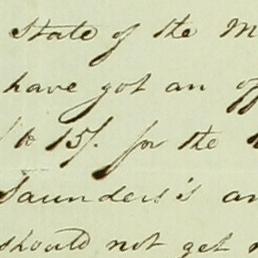 State of the M
have got an of
to 15/. for the
Saunders's an
should not get